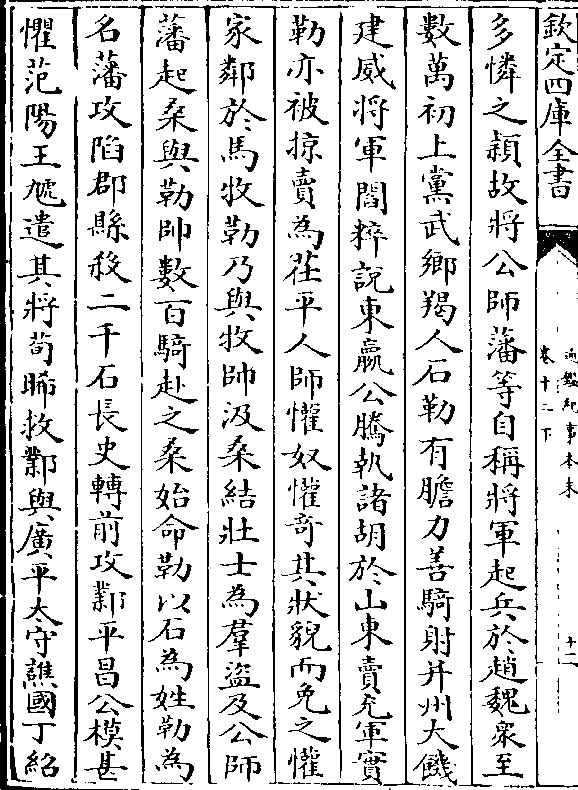 欽定四庫全書
通鑑紀事本末
卷十三下
十二
多憐之穎故將公師藩等自稱將軍起兵於趙魏衆至
數萬初上黨武鄉羯人石勒有膽力善騎射并州大饑
建威將軍閻粹說東嬴公騰執諸胡於山東賣充軍實
勒亦被掠賣為茌平人師懽奴懽奇其狀貌而免之懽
家鄰於馬牧勒乃與牧帥汲桑結壯士為羣盜及公師
藩起桑與勒帥數百騎赴之桑始命勒以石為姓勒為
名藩攻陷郡縣殺二千石長史轉前攻鄴平昌公模甚
懼范陽王虓遣其將苟晞救鄴與廣平太守譙國丁紹